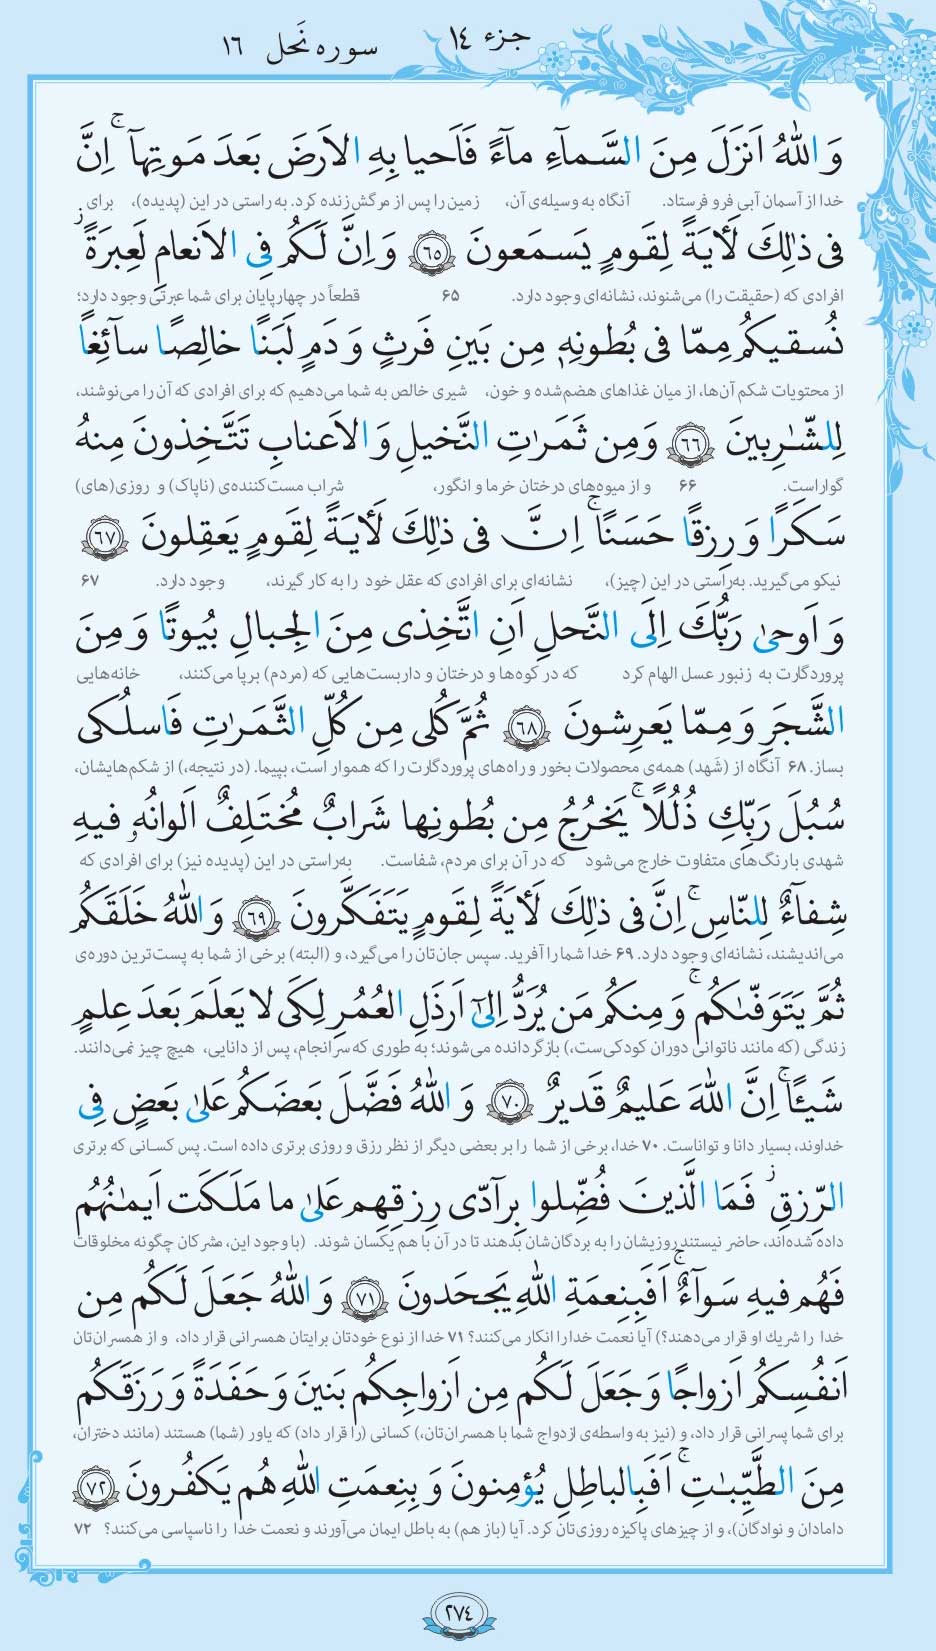 جزء ۱۴
سوره نَحل ۱۶
وَ اللّٰهُ اَنزَلَ مِنَ السَّماءِ ماءً فَاَحیا بِهِ الاَرضَ بَعدَ مَوتِهاۤ ۚ اِنَّ
خدا از آسمان آبی فرو فرستاد. آنگاه به وسیله‌ی آن، زمین را پس از مرگش زنده کرد. به راستی در این (پدیده)، برای
فی ذٰلِكَ لَأٰیَةً لِقَومٍ یَسمَعونَ ﴿۶۵﴾ وَ اِنَّ لَكُم فِی الاَنعامِ لَعِبرَةً ؗ
افرادی که (حقیقت را) می‌شنوند، نشانه‌ای وجود دارد. ۶۵ قطعاً در چهارپایان برای شما عبرتی وجود دارد؛
نُسقیكُم مِمّا فی بُطونِهٖ مِن بَینِ فَرثٍ وَ دَمٍ لَبَنًا خالِصًا سآئِغًا
از محتویات شکم آن‌ها، از میان غذاهای هضم‌شده و خون، شیری خالص به شما می‌دهیم که برای افرادی که آن را می‌نوشند،
لِلشّٰرِبینَ ﴿۶۶﴾ وَ مِن ثَمَرٰتِ النَّخیلِ وَ الاَعنابِ تَتَّخِذونَ مِنهُ
گواراست. ۶۶ و از میوه‌های درختان خرما و انگور، شراب مست‌کننده‌ی (ناپاک) و روزی(های)
سَكَرًا وَ رِزقًا حَسَنًا ۚ اِنَّ فی ذٰلِكَ لَأٰیَةً لِقَومٍ یَعقِلونَ ﴿۶۷﴾
نیکو می‌گیرید. به‌راستی در این (چیز)، نشانه‌ای برای افرادی که عقل خود را به کار گیرند، وجود دارد. ۶۷
وَ اَوحیٰ رَبُّكَ اِلَی النَّحلِ اَنِ اتَّخِذی مِنَ الجِبالِ بُیوتًا وَ مِنَ
پروردگارت به زنبور عسل الهام کرد که در کوه‌ها و درختان و داربست‌هایی که (مردم) برپا می‌کنند، خانه‌هایی
الشَّجَرِ وَ مِمّا یَعرِشونَ ﴿۶۸﴾ ثُمَّ كُلی مِن كُلِّ الثَّمَرٰتِ فَاسلُكی
بساز. ۶۸ آنگاه از (شَهد) همه‌ی محصولات بخور و راه‌های پروردگارت را که هموار است، بپیما. (در نتیجه،) از شکم‌هایشان،
سُبُلَ رَبِّكِ ذُلُلًا ۚ یَخرُجُ مِن بُطونِها شَرابٌ مُختَلِفٌ اَلوانُهٗ فیهِ
شهدی با رنگ‌های متفاوت خارج می‌شود که در آن برای مردم، شفاست. به‌راستی در این (پدیده نیز) برای افرادی که
شِفآءٌ لِلنّاسِ ۚ اِنَّ فی ذٰلِكَ لَأٰیَةً لِقَومٍ یَتَفَكَّرونَ ﴿۶۹﴾ وَ اللّٰهُ خَلَقَكُم
می‌اندیشند، نشانه‌ای وجود دارد. ۶۹ خدا شما را آفرید. سپس جان‌تان را می‌گیرد، و (البته) برخی از شما به پست‌ترین دوره‌ی
ثُمَّ یَتَوَفّٰىكُم ۚ وَ مِنكُم مَن یُرَدُّ اِلیٰۤ اَرذَلِ العُمُرِ لِكَی لا یَعلَمَ بَعدَ عِلمٍ
زندگی (که مانند ناتوانی دوران کودکی‌ست،) بازگردانده می‌شوند؛ به طوری که سرانجام، پس از دانایی، هیچ چیز نمی‌دانند.
شَیـًٔا ۚ اِنَّ اللّٰهَ عَلیمٌ قَدیرٌ ﴿۷۰﴾ وَ اللّٰهُ فَضَّلَ بَعضَكُم عَلیٰ بَعضٍ فِی
خداوند، بسیار دانا و تواناست. ۷۰ خدا، برخی از شما را بر بعضی دیگر از نظر رزق و روزی برتری داده است. پس کسانی که برتری
الرِّزقِ ؗ فَمَا الَّذینَ فُضِّلوا بِرآدّی رِزقِهِم عَلیٰ ما مَلَكَت اَیمٰنُهُم
داده شده‌اند، حاضر نیستند روزیشان را به بردگان‌شان بدهند تا در آن با هم یکسان شوند. (با وجود این، مشرکان چگونه مخلوقات
فَهُم فیهِ سَوآءٌ ۚ اَفَبِنِعمَةِ اللّٰهِ یَجحَدونَ ﴿۷۱﴾ وَ اللّٰهُ جَعَلَ لَكُم مِن
خدا را شریك او قرار می‌دهند؟) آیا نعمت خدا را انکار می‌کنند؟ ۷۱ خدا از نوع خودتان برایتان همسرانی قرار داد، و از همسران‌تان
اَنفُسِكُم اَزواجًا وَ جَعَلَ لَكُم مِن اَزواجِكُم بَنینَ وَ حَفَدَةً وَ رَزَقَكُم
برای شما پسرانی قرار داد، و (نیز به واسطه‌ی ازدواج شما با همسران‌تان،) کسانی (را قرار داد) که یاور (شما) هستند (مانند دختران،
مِنَ الطَّیِّبـٰتِ ۚ اَفَبِالباطِلِ یُؤمِنونَ وَ بِنِعمَتِ اللّٰهِ هُم یَكفُرونَ ﴿۷۲﴾
دامادان و نوادگان)، و از چیزهای پاکیزه روزی‌تان کرد. آیا (باز هم) به باطل ایمان می‌آورند و نعمت خدا را ناسپاسی می‌کنند؟ ۷۲
۲۷۴